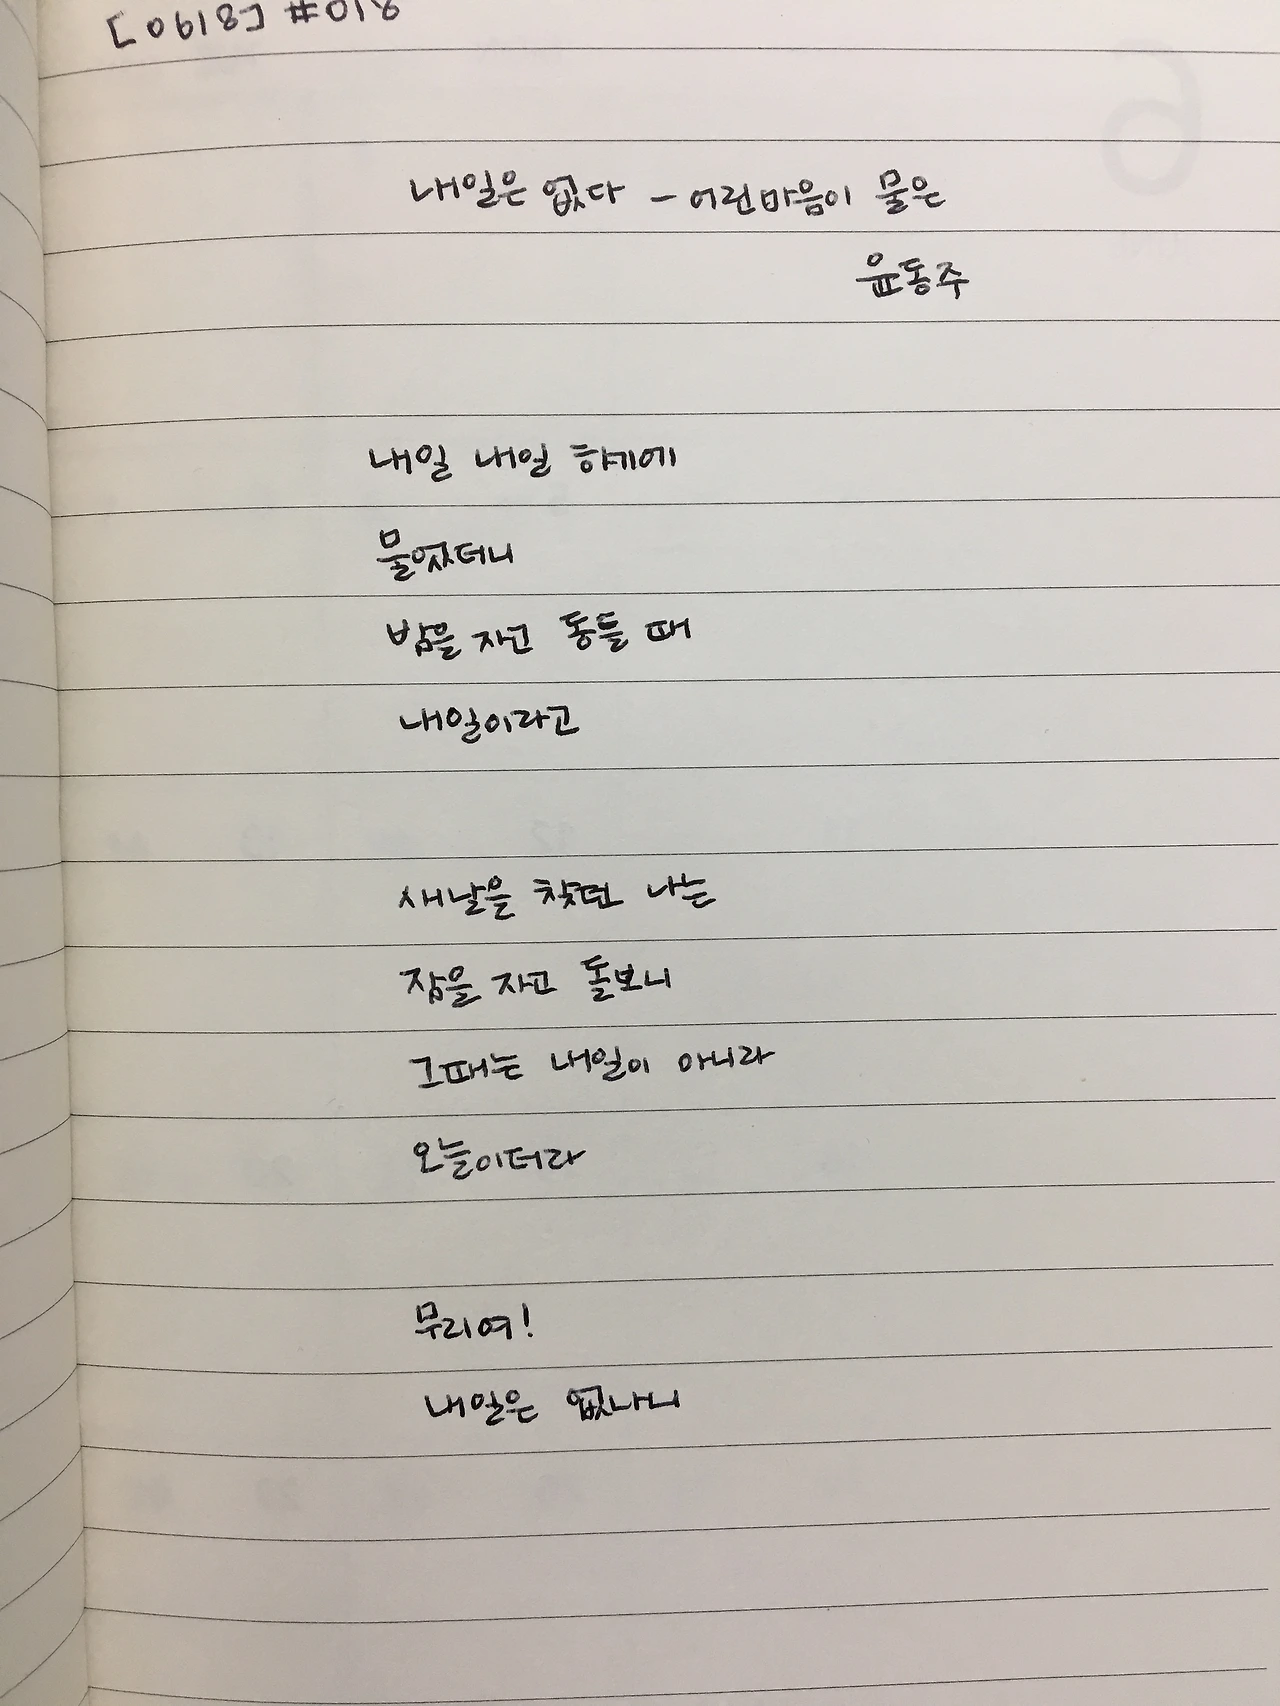 [0618] #018
내일은 없다 - 어린마음이 물은
윤동주
내일 내일 하기에
물었더니
밤을 자고 동틀 때
내일이라고
새날을 찾던 나는
잠을 자고 돌보니
그때는 내일이 아니라
오늘이더라
무리여!
내일은 없나니